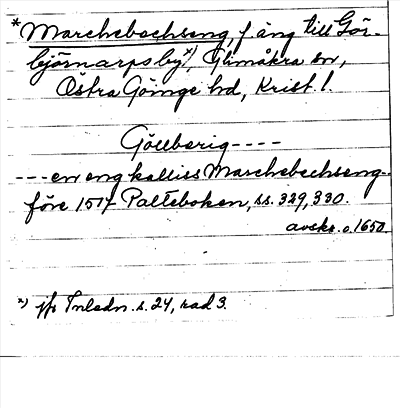 *Marchebochseng, f. äng till Gör-
björnarps by x), Glimåkra sn,
Östra Göinge hd, Krist. l.
Göllberig----
---en eng kalliss Marchebochseng-
före 1517 Palteboken, ss. 329, 330.
avskr. o. 1650.
x) jfr Inledn. s. 24, rad 3.